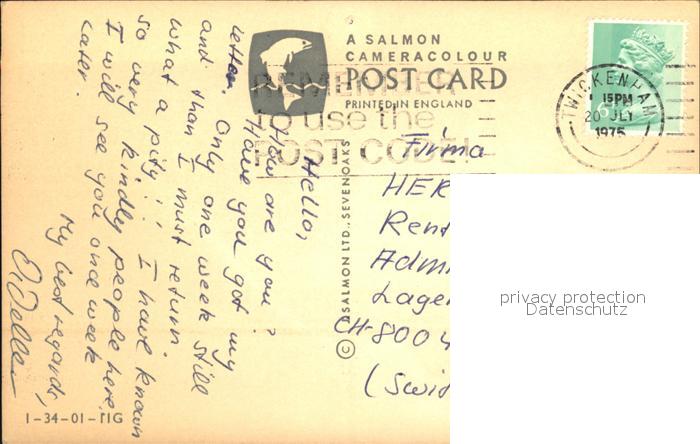 A SALMON
CAMERACOLOUR
POST CARD
PRINTED IN ENGLAND
REMEMBER
to use the
POST CODE!
TWICKENHAM
15PM
20 JLY
1975
© J SALMON LTD., SEVENOAKS
Hello,
How are you?
Have you got my
letter. Only one week still
and than I must return.
What a pity!! I have known
so very kindly people here.
I will see you once week
later.
My best regards,
Firma
HER
Rent
Admi
Lager
CH-8004
(Swi
privacy protection
Datenschutz
1-34-01-